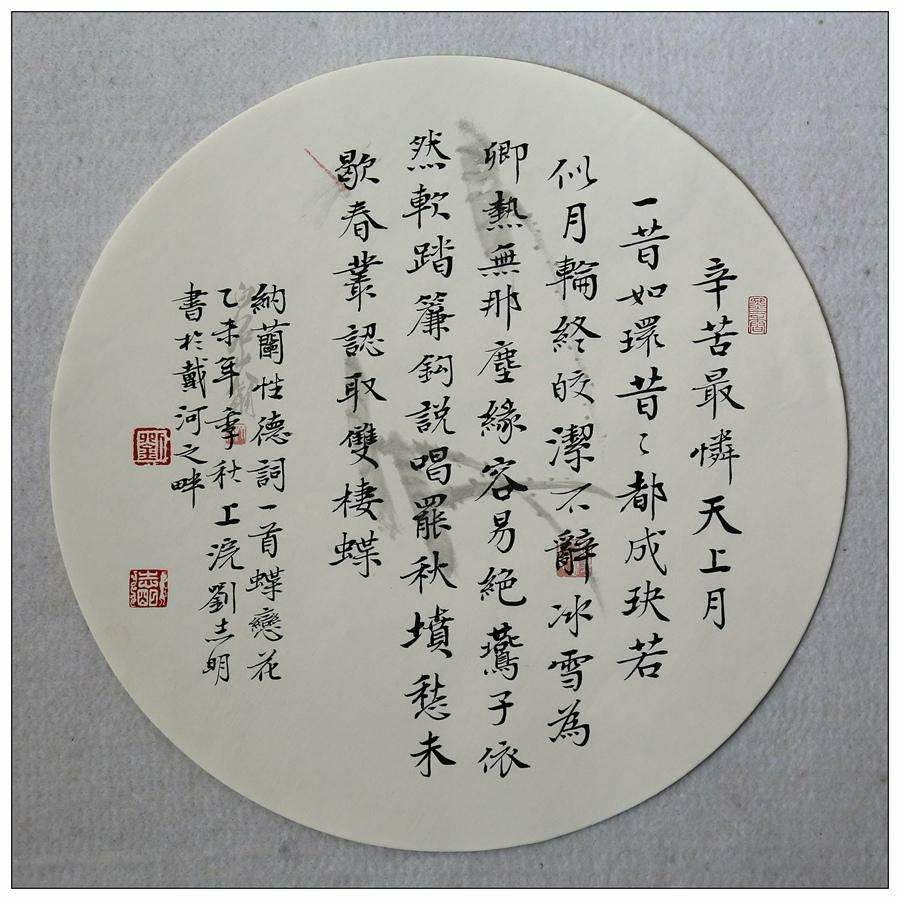 辛苦最憐天上月
一昔如環昔〻都成玦若
似月輪終皎潔不辭冰雪為
卿熱無那塵緣容易絕鷰子依
然軟踏簾鈎説唱罷秋墳愁未
歇春叢認取雙棲蝶
納蘭性德詞一首蝶戀花
乙未年季秋上浣劉志明
書於戴河之畔
劉